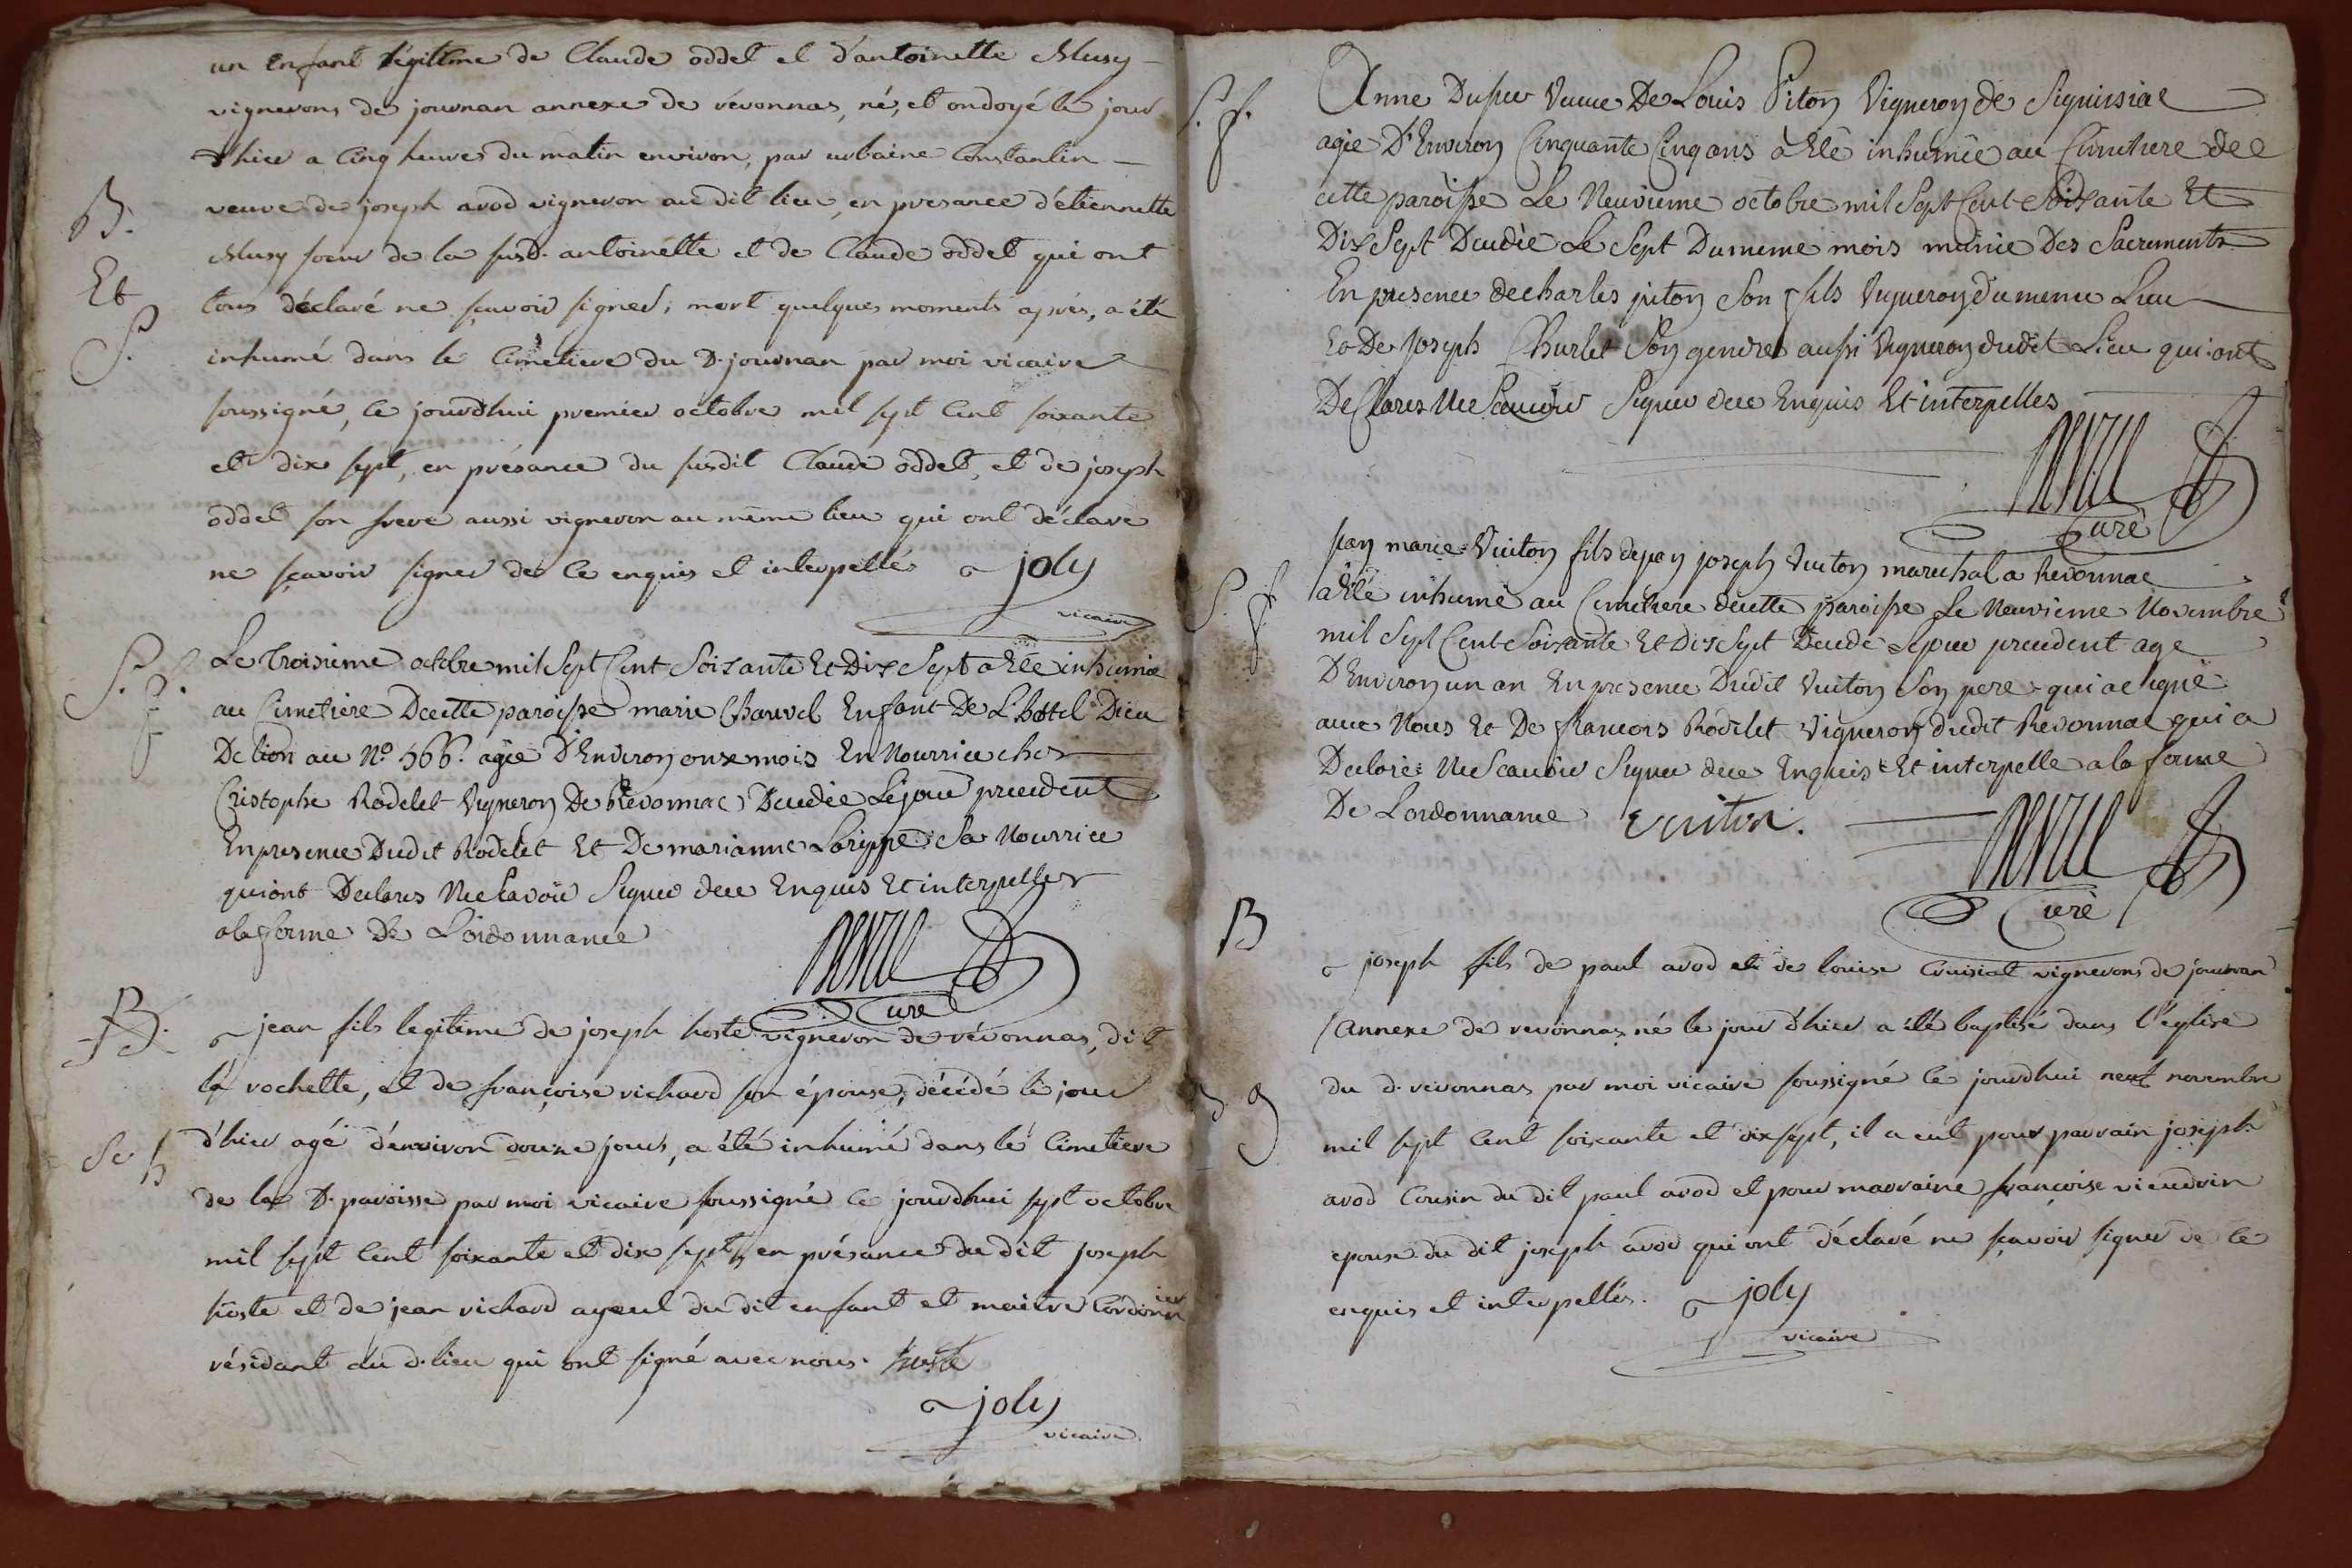 un enfant légitime de Claude oddet et d'antoinette Musy
vignerons de journan annexe de revonnas, né, et ondoyé le jour
d'hier a Cinq heures du matin environ, par urbaine Constantin
veuve de joseph avod vigneron au dit lieu, en presance d'étiennette
B.
Musy soeur de la susd. antoinette et de Claude oddet qui ont
Et
tous déclaré ne sçavoir signer; mort quelques moments après, a été
S.
inhumé dans le Cimetiere du d. journan par moi vicaire
soussigné, ce jourd'hui premier octobre mil sept cent soixante
et dix sept, en présance du susdit Claude oddet, et de joseph
oddet son frere aussi vigneron au même lieu qui ont déclaré
ne sçavoir signer de ce enquis et interpellé joly
vicaire
Le troisieme octobre mil Sept Cent Soixante Et Dix Sept a Eté inhumée
au Cimetiere Decette paroisse marie Chauvel Enfant De L'hôtel Dieu
De lion au No. 566. agée D'Environ onze mois En Nourrice chez
Cristophe Rodelet Vigneron De Revonnac Decedée Le jour precedent
En presence Dudit Rodelet Et De marianne Sa Nourrice
qui ont Declarés Ne Savoir Signer dece Enquis Et interpelles
a la forme De Lordonnance
Curé
B.
jean fils legitime de joseph hoste vigneron de revonnas, dit
la rochette, et de françoise richard son épouse, décédé le jour
d'hier agé d'environ douze jours, a été inhumé dans le Cimetiere
de la d. paroisse par moi vicaire soussigné ce jourd'hui sept octobre
mil sept cent soixante et dix sept, en présance du dit joseph
hoste et de jean richard ayeul du dit enfant et maitre Cordonnier
résidant au d. lieu qui ont signé avec nous. hoste
joly
vicaire
S. f.
Anne Dupur Veuve De Louis Piton Vigneron de Signissiac
agée D'Environ Cinquante Cinq ans a Eté inhumée au Cimetiere de
cette paroisse Le Neuvieme octobre mil Sept Cent Soixante Et
Dix Sept Decedée Le Sept Du meme mois munie Des Sacrements
En presence de charles piton Son fils Vigneron du meme Lieu
Et De Joseph Churlet Son gendre aussi Vigneron dudit Lieu qui ont
Declarés Ne Scavoir Signer dece Enquis Et interpelles
Curé
S. f.
jean marie Vuiton fils de jean joseph Vuiton marechal a Revonnac
a Eté inhumé au Cimetiere de cette paroisse Le Neuvieme Novembre
mil Sept Cent Soixante Et Dix Sept Decedé Le jour precedent agé
D'Environ un an En presence Dudit Vuiton Son pere qui a signé
avec Nous Et De francois Rodelet Vigneron dudit Revonnac qui a
Declaré Ne Scavoir Signer dece Enquis Et interpelle a la forme
De Lordonnance Vuiton.
Curé
B
joseph fils de paul avod et de louise Cruisiat vignerons de journan
annexe de revonnas né le jour d'hier a été baptisé dans l'eglise
du d. revonnas par moi vicaire soussigné ce jourd'hui neuf novembre
mil sept cent soixante et dix sept, il a eut pour parrain joseph
avod Cousin du dit paul avod et pour marraine françoise vieudrin
epouse du dit joseph avod qui ont déclaré ne sçavoir signer de ce
enquis et interpellés. joly
vicaire